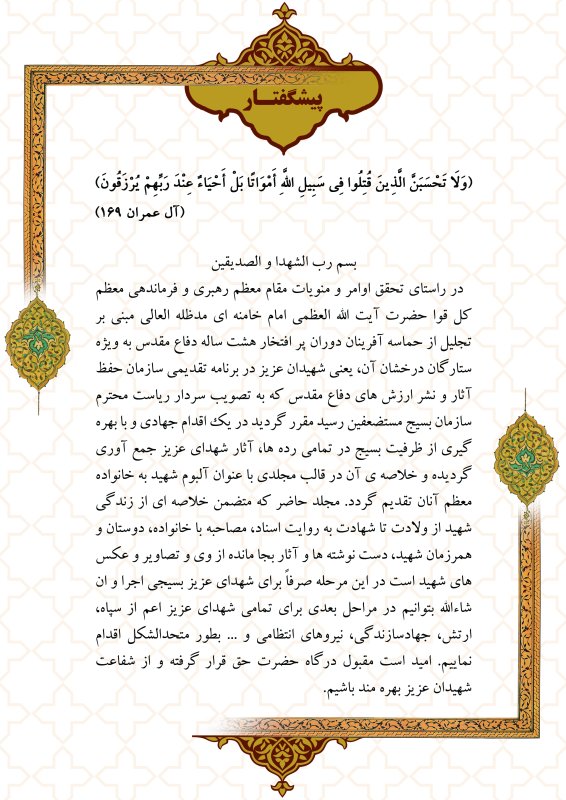 پیشگفتـــار
(وَلَا تَحْسَبَنَّ الَّذِينَ قُتِلُوا فِى سَبِيلِ اللَّهِ أَمْوَاتًا بَلْ أَحْيَاءٌ عِنْدَ رَبِّهِمْ يُرْزَقُونَ)
(آل عمران ۱۶۹)
بسم رب الشهدا و الصدیقین
در راستای تحقق اوامر و منویات مقام معظم رهبری و فرماندهی معظم
کل قوا حضرت آیت الله العظمی امام خامنه ای مدظله العالی مبنی بر
تجلیل از حماسه آفرینان دوران پر افتخار هشت ساله دفاع مقدس به ویژه
ستارگان درخشان آن، یعنی شهیدان عزیز در برنامه تقدیمی سازمان حفظ
آثار و نشر ارزش های دفاع مقدس که به تصویب سردار ریاست محترم
سازمان بسیج مستضعفین رسید مقرر گردید در یک اقدام جهادی و با بهره
گیری از ظرفیت بسیج در تمامی رده ها، آثار شهدای عزیز جمع آوری
گردیده و خلاصه ی آن در قالب مجلدی با عنوان آلبوم شهید به خانواده
معظم آنان تقدیم گردد. مجلد حاضر که متضمن خلاصه ای از زندگی
شهید از ولادت تا شهادت به روایت اسناد، مصاحبه با خانواده، دوستان و
همرزمان شهید، دست نوشته ها و آثار بجا مانده از وی و تصاویر و عکس
های شهید است در این مرحله صرفاً برای شهدای عزیز بسیجی اجرا و ان
شاءالله بتوانیم در مراحل بعدی برای تمامی شهدای عزیز اعم از سپاه،
ارتش، جهادسازندگی، نیروهای انتظامی و ... بطور متحدالشکل اقدام
نماییم. امید است مقبول درگاه حضرت حق قرار گرفته و از شفاعت
شهیدان عزیز بهره مند باشیم.